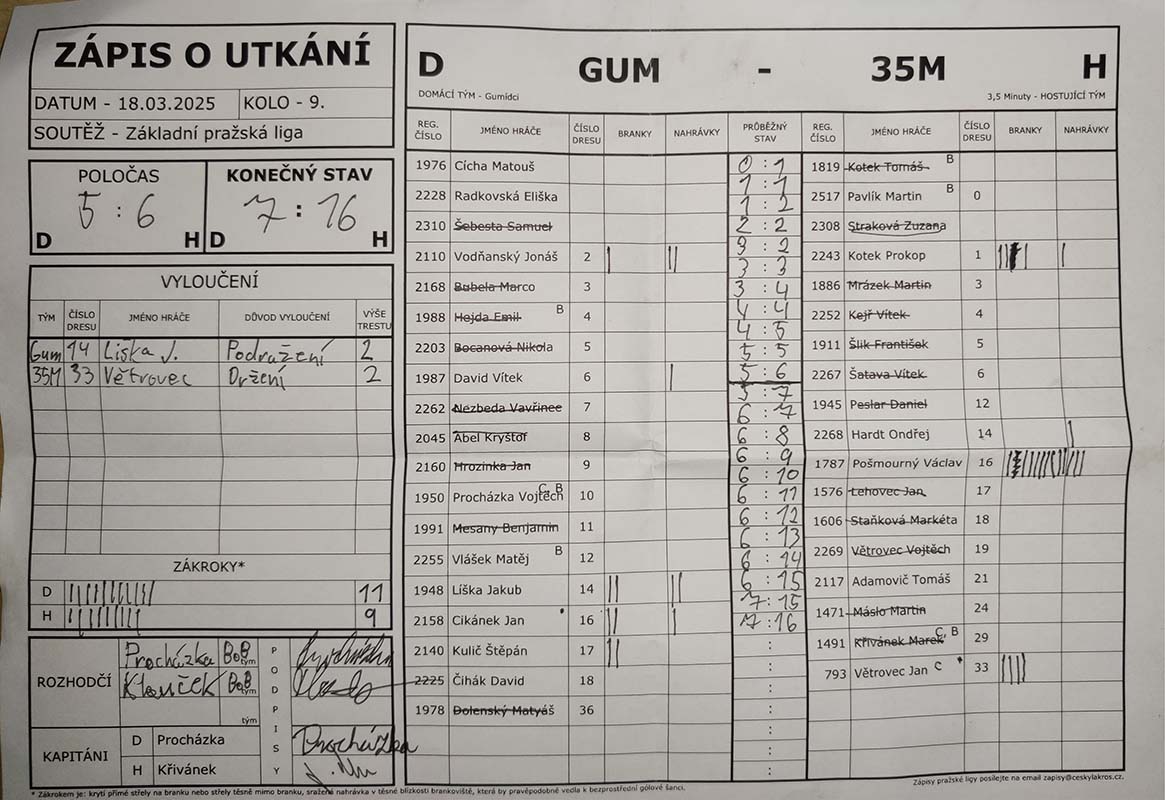 ZÁPIS O UTKÁNÍ
DATUM - 18.03.2025 KOLO - 9.
SOUTĚŽ - Základní pražská liga
POLOČAS KONEČNÝ STAV
5 : 6 7 : 16
D H D H
VYLOUČENÍ
TÝM ČÍSLO DRESU JMÉNO HRÁČE DŮVOD VYLOUČENÍ VÝŠE TRESTU
Gum 14 Liška J. Podražení 2
35M 33 Větrovec Držení 2
ZÁKROKY*
D 11
H 9
ROZHODČÍ
Procházka BoB tým
Klouček BoB tým
tým
PODPISY
KAPITÁNI
D Procházka Procházka
H Křivánek
D GUM - 35M H
DOMÁCÍ TÝM - Gumídci 3,5 Minuty - HOSTUJÍCÍ TÝM
REG. ČÍSLO JMÉNO HRÁČE ČÍSLO DRESU BRANKY NAHRÁVKY PRŮBĚŽNÝ STAV REG. ČÍSLO JMÉNO HRÁČE ČÍSLO DRESU BRANKY NAHRÁVKY
1976 Cícha Matouš
2228 Radkovská Eliška
2310 Šebesta Samuel
2110 Vodňanský Jonáš 2
2168 Bubela Marco 3
1988 Hejda Emil B 4
2203 Bocanová Nikola 5
1987 David Vítek 6
2262 Nezbeda Vavřinec 7
2045 Ábel Kryštof 8
2160 Hrozinka Jan 9
1950 Procházka Vojtěch C, B 10
1991 Mesany Benjamin 11
2255 Vlášek Matěj B 12
1948 Líška Jakub 14
2158 Cikánek Jan 16
2140 Kulič Štěpán 17
2225 Čihák David 18
1978 Dolenský Matyáš 36
0 : 1
1 : 1
1 : 2
2 : 2
3 : 2
3 : 3
3 : 4
4 : 4
4 : 5
5 : 5
5 : 6
5 : 7
6 : 7
6 : 8
6 : 9
6 : 10
6 : 11
6 : 12
6 : 13
6 : 14
6 : 15
7 : 15
7 : 16
1819 Kotek Tomáš B
2517 Pavlík Martin B 0
2308 Straková Zuzana
2243 Kotek Prokop 1
1886 Mrázek Martin 3
2252 Kejř Vítek 4
1911 Šlik František 5
2267 Šatava Vítek 6
1945 Peslar Daniel 12
2268 Hardt Ondřej 14
1787 Pošmourný Václav 16
1576 Lehovec Jan 17
1606 Staňková Markéta 18
2269 Větrovec Vojtěch 19
2117 Adamovič Tomáš 21
1471 Máslo Martin 24
1491 Křivánek Marek C, B 29
793 Větrovec Jan C 33
Zápisy pražské ligy posílejte na email zapisy@ceskylakros.cz.
* Zákrokem je: krytí přímé střely na branku nebo střely těsně mimo branku, sražená nahrávka v těsné blízkosti brankoviště, která by pravěpodobně vedla k bezprostřední gólové šanci.